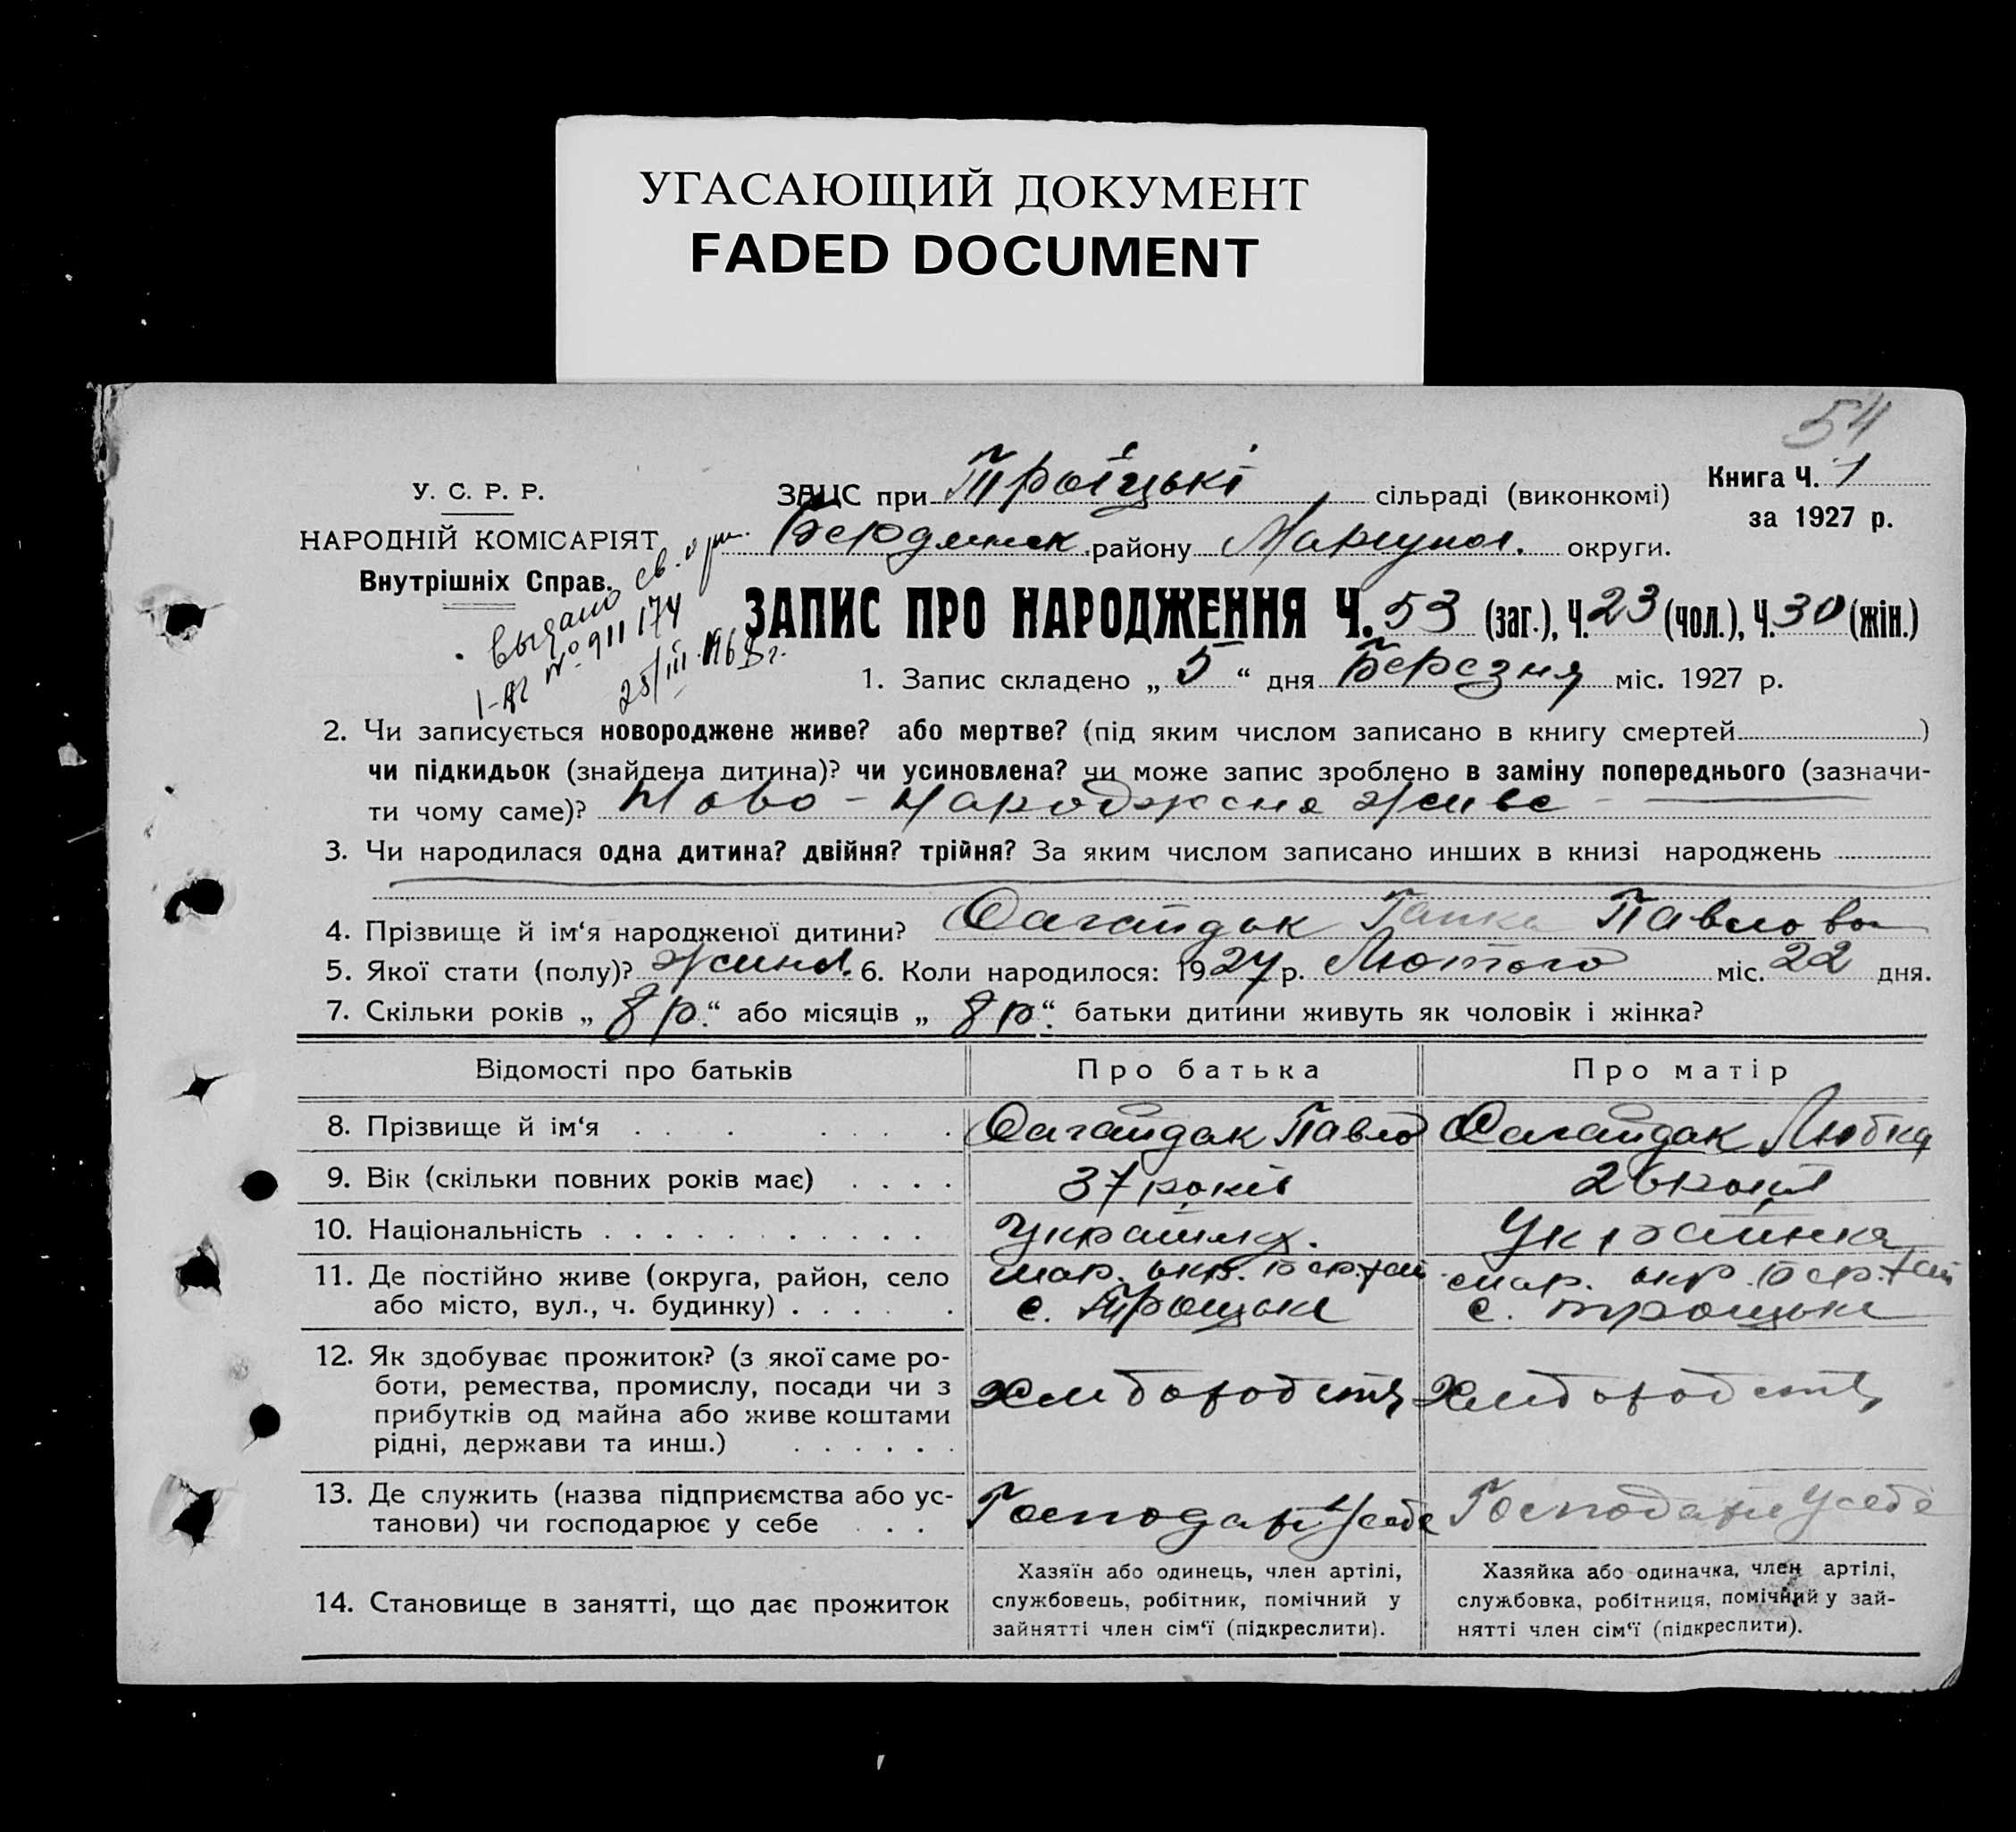 УГАСАЮЩИЙ ДОКУМЕНТ
FADED DOCUMENT
54
У. С. Р. Р.
НАРОДНІЙ КОМІСАРІЯТ
Внутрішніх Справ.
ЗАЦС при Троїцькі сільраді (виконкомі)
Бердянск району Мариупол. округи.
Книга Ч. 1
за 1927 р.
Выдано св.
1-АГ № 911174
25/III 1968 г.
ЗАПИС ПРО НАРОДЖЕННЯ Ч. 53 (заг.), Ч. 23 (чол.), Ч. 30 (жін.)
1. Запис складено „ 5 “ дня Березня міс. 1927 р.
2. Чи записується новороджене живе? або мертве? (під яким числом записано в книгу смертей )
чи підкидьок (знайдена дитина)? чи усиновлена? чи може запис зроблено в заміну попереднього (зазначи-
ти чому саме)? Ново - народжене живе
3. Чи народилася одна дитина? двійня? трійня? За яким числом записано инших в книзі народжень
4. Прізвище й ім‘я народженої дитини? Сагайдак Ганка Павлова
5. Якої стати (полу)? жиноч. 6. Коли народилося: 1927 р. Лютого міс. 22 дня.
7. Скільки років „ 8 р. “ або місяців „ 8 р. “ батьки дитини живуть як чоловік і жінка?
Відомості про батьків Про батька Про матір
8. Прізвище й ім‘я Сагайдак Павло Сагайдак Любка
9. Вік (скільки повних років має) 37 років 26 років
10. Національність Українец. Українка
11. Де постійно живе (округа, район, село
або місто, вул., ч. будинку)
мар. окр. Бер. рай
с. Троицьке
мар. окр. Бер. рай
с. Троицьке
12. Як здобуває прожиток? (з якої саме ро-
боти, ремества, промислу, посади чи з
прибутків од майна або живе коштами
рідні, держави та инш.)
Хлиборобств Хлиборобств
13. Де служить (назва підприємства або ус-
танови) чи господарює у себе
Господари у себе Господари у себе
14. Становище в занятті, що дає прожиток
Хазяїн або одинець, член артілі,
службовець, робітник, помічний у
зайнятті член сім‘ї (підкреслити).
Хазяйка або одиначка, член артілі,
службовка, робітниця, помічний у зай-
нятті член сім‘ї (підкреслити).